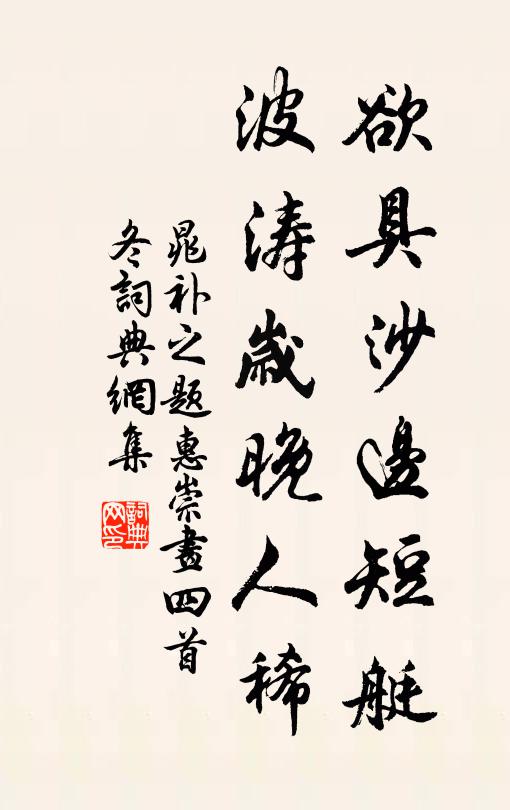 欲具沙邊短艇
波涛歲晚人稀
晁补之题惠崇畫四首
冬詞典網集
詞典网印